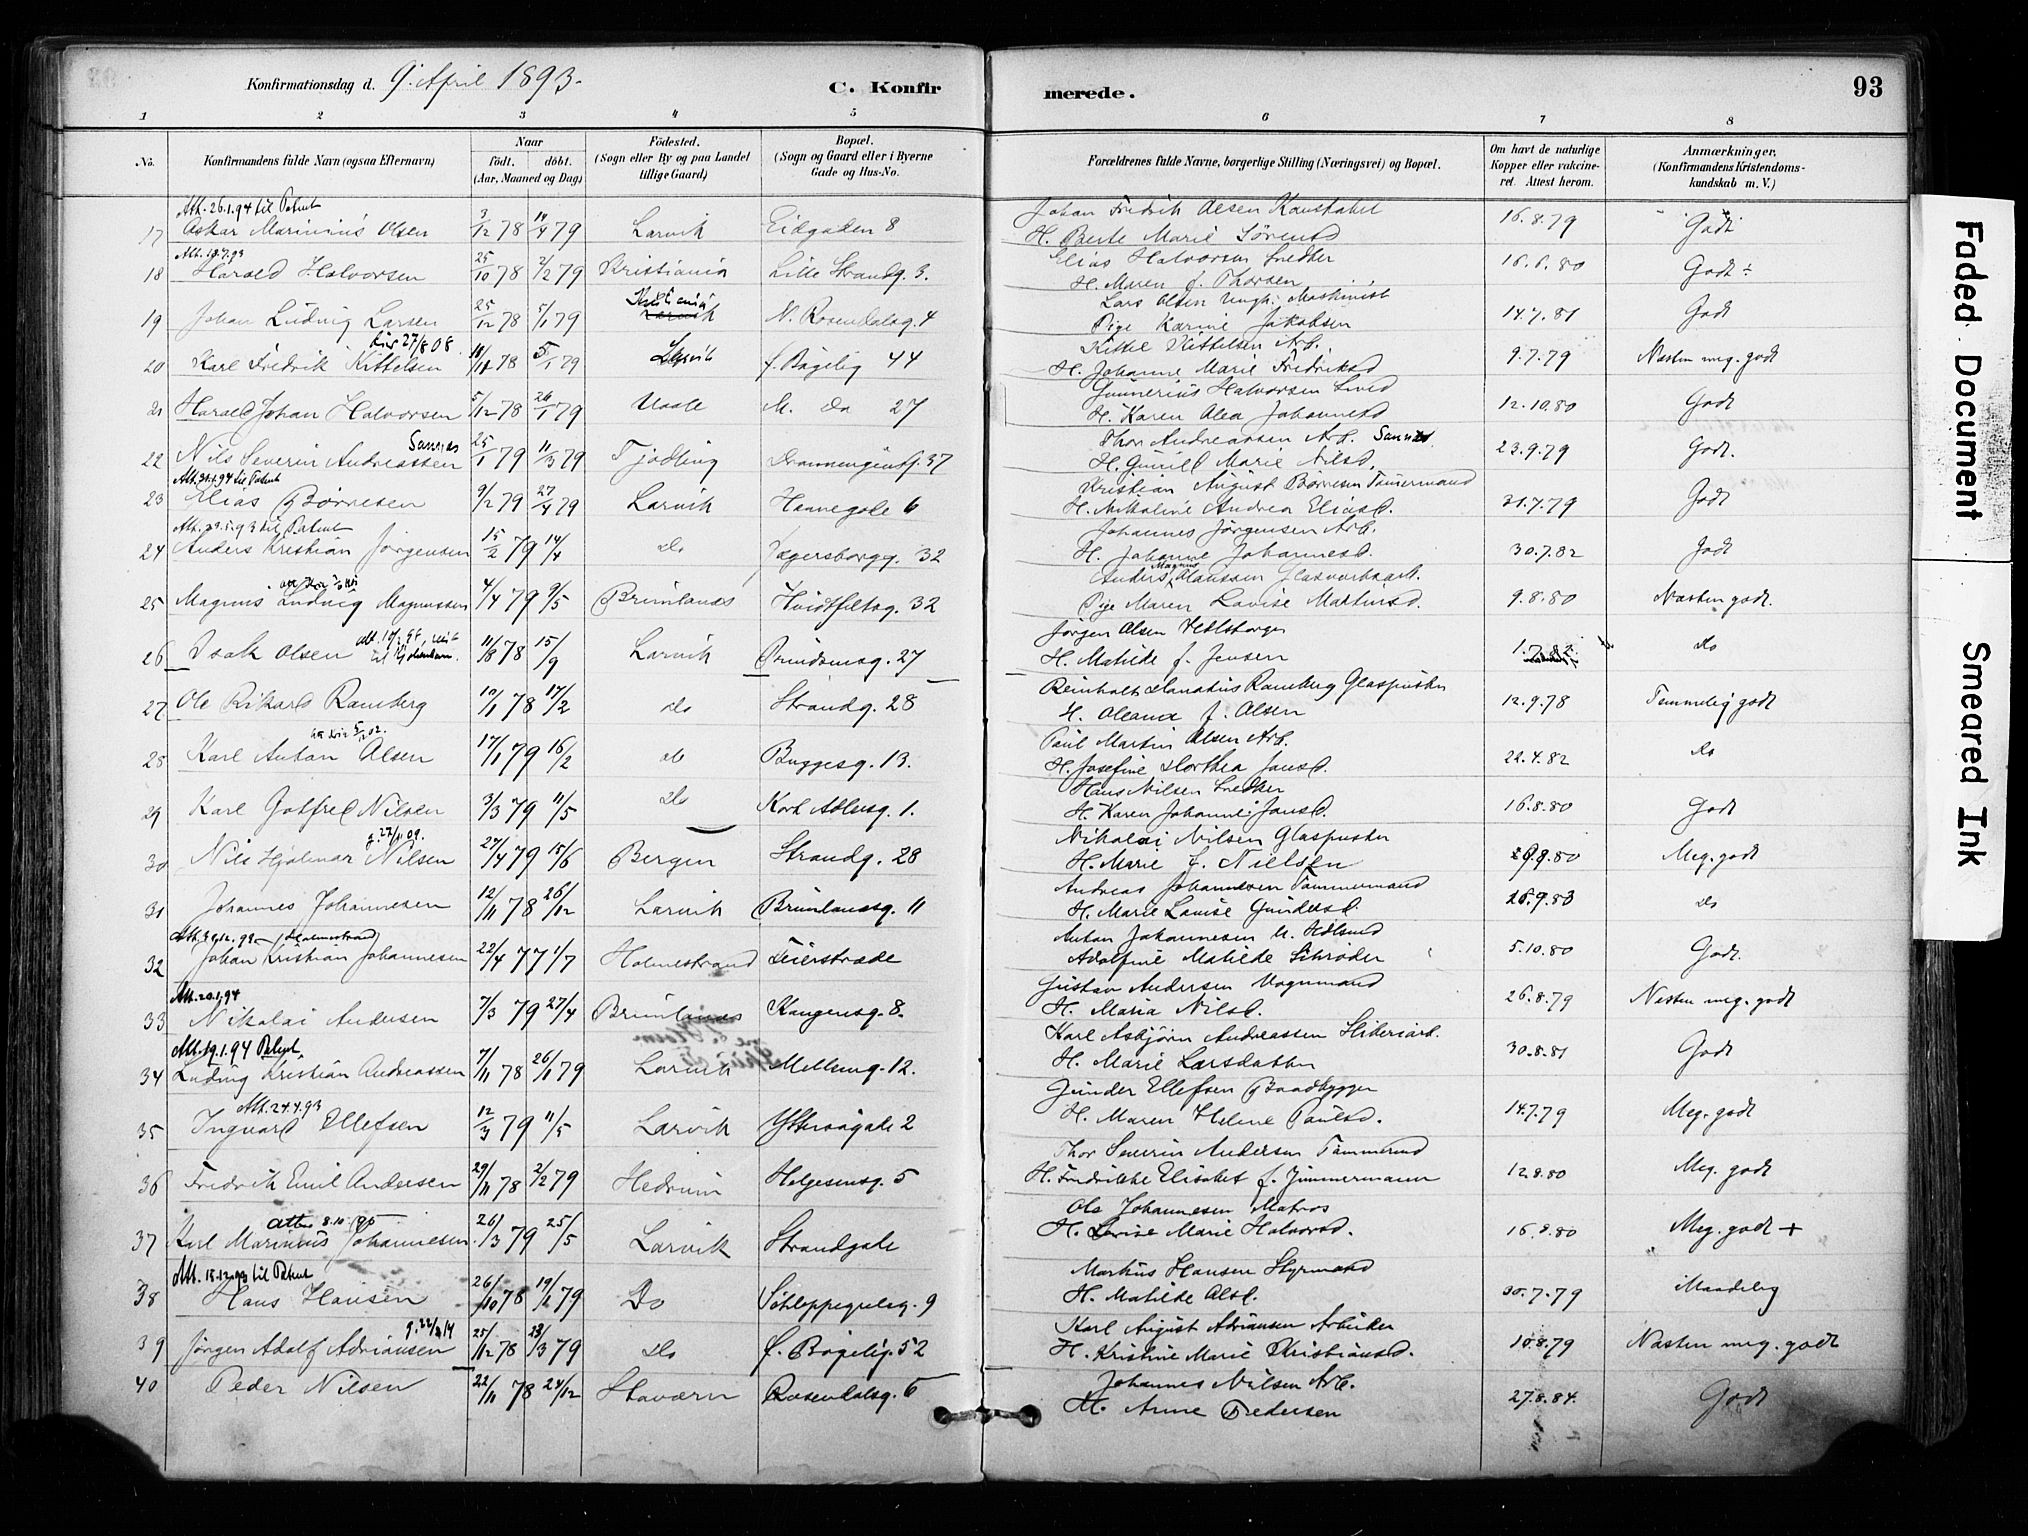 Konfirmationsdag d. 9. April 1893.
C. Konfir
merede.
93
1 2 3 4 5 6 7 8
No.
Konfirmandens fulde Navn (ogsaa Efternavn)
Naar
født. døbt.
(Aar, Maaned og Dag)
Fødested.
(Sogn eller By og paa Landet
tillige Gaard)
Bopæl.
(Sogn og Gaard eller i Byerne
Gade og Hus-No.
Forældrenes fulde Navne, borgerlige Stilling (Næringsvei) og Bopæl.
Om havt de naturlige
Kopper eller vakcine-
ret. Attest herom.
Anmærkninger,
(Konfirmandens Kristendoms-
kundskab m. V.)
Att. 26.1.94 til Patent
17 Oskar Marinius Olsen 3/12 78 14/4 79 Larvik Eidgaden 8 Johan Fredrik Olsen Konstabel 16.8.79 Godt
H. Berte Marie Sørensd
Att. 19.7.93
18 Harald Halvorsen 25/10 78 2/2 79 Kristiania Lille Strandg. 3. Elias Halvorsen Snedker 16.6.80 Godt ÷
H. Maren f. Thorsen
19 Johan Ludvig Larsen 25/12 78 5/1 79 Kristiania N. Rosendalsg. 4 Lars Olsen ungk. Maskinist 14.7.81 Godt
Pige Karine Jakobsen
27/8 08.
20 Karl Fredrik Kittelsen 10/11 78 5/1 79 Larvik f. Bøgelig 44 Kittel Kittelsen Arb. 9.7.79 Næsten meg. godt
H. Johanne Marie Fredriksd
21 Harald Johan Halvorsen 5/12 78 26/1 79 M. Do 27 Gunnerius Halvorsen Smed 12.10.80 Godt
H. Karen Alea Johannesd
Sannes
22 Nils Severin Andreassen 25/1 79 11/3 79 Tjødling 37 Thor Andreassen Arb. Sannes 23.9.79 Godt.
H. Gunild Marie Nilsd.
Att. 31.1.94 til Patent
23 Elias Børresen 9/2 79 27/4 79 Larvik Hannegate 6 Kristian August Børresen Tømmermand 31.7.79 Godt
H. Nikoline Andrea Eliasd.
Att. 29.5.93 til Patent
24 Anders Kristian Jørgensen 15/2 79 14/4 Do Jegersborgg. 32 Johannes Jørgensen Arb. 30.7.82 Godt
H. Johanne Johannesd.
25 Magnus Ludvig Magnussen 4/4 79 9/5 Brunlanes Hvidtfeltsg. 32 Anders Magnus Olaussen Glasverksarb. 9.8.80 Næsten godt.
Pige Maren Lovise Martinsd.
26 Isak Olsen 11/8 78 15/9 Larvik 27 Jørgen Olsen Do
H. Matilde f. Jensen
27 Ole Rikard Ramberg 10/1 78 17/2 Do Strandg. 28 Reinholt Donatus Ramberg Glaspuster 12.9.78 Temmelig godt
H. Oleana f. Olsen
28 Karl Anton Olsen 17/1 79 16/2 do Buggesg. 13. Paul Martin Olsen Arb. 22.4.82 Do
H. Josefine Dorthea Jansd.
29 Karl Gotfred Nilsen 3/3 79 11/5 Do Kort Adlersg. 1. Hans Nilsen Snedker 16.8.80 Godt
H. Karen Johanne Jansd.
g. 27/11 09.
30 Nils Hjalmar Nilsen 27/4 79 15/6 Bergen Strandg. 28 Nikolai Nilsen Glaspuster Meg. godt
H. Marie f. Nielsen
31 Johannes Johannesen 12/11 78 26/12 Larvik Brunlanesg. 11 Andreas Johannesen Tømmermand 28.9.83 Do
H. Marie Lovise Gundersd.
32 Johan Kristian Johannesen 22/4 77 1/7 Holmestrand Feierstræde Anton Johannesen 5.10.80 Godt.
Adolfine Matilde Schrøder
Att. 20.1.94
33 Nikolai Andersen 7/3 79 27/4 Brunlanes Kongensg. 8. Gustav Andersen Vognmand 26.8.79 Næsten meg. godt
H. Maria Nilsd.
Att. 19.1.94 Patent.
34 Ludvig Kristian Andreassen 7/11 78 26/1 79 Larvik Mellemg. 12. Karl Asbjørn Andreassen 30.8.81 Godt
H. Marie Larsdatter
Att. 24.4.93
35 Ingvard Ellefsen 12/3 79 11/5 Larvik Yttersøgade 2 Gunder Ellefsen Baadbygger 14.7.79 Meg. godt
H. Maren Helene Paulsd.
36 Fredrik Emil Andersen 29/11 78 2/2 79 Hedrum Helgesensg. 5 Thor Severin Andersen Tømmermd 12.8.80 Meg. godt
H. Fredrikke Elisabet f. Zimmermann
Attest 8.10.95
37 Karl Marinius Johannesen 26/3 79 25/5 Larvik Strandgade Ole Johannesen Matros 16.8.80 Meg. godt +
H. Lovise Marie Halvorsd.
Att. 18.12.93 til Patent
38 Hans Hansen 26/10 78 19/2 79 Do Schleppegrelsg. 9 Markus Hansen Styrmand 30.7.79 Maadelig
H. Matilde Olsd.
39 Jørgen Adolf Adriansen 25/12 78 23/3 79 Do f. Bøgelig. 52 Karl August Adriansen Arbeider 10.8.79 Næsten meg. godt
H. Kristine Marie Kristiansd.
40 Peder Nilsen 22/11 78 24/12 Stavern Rosendalsg. 6 Johannes Nilsen Arb. 27.8.84. Godt
H. Anne Pedersen
Faded Document
Smeared Ink